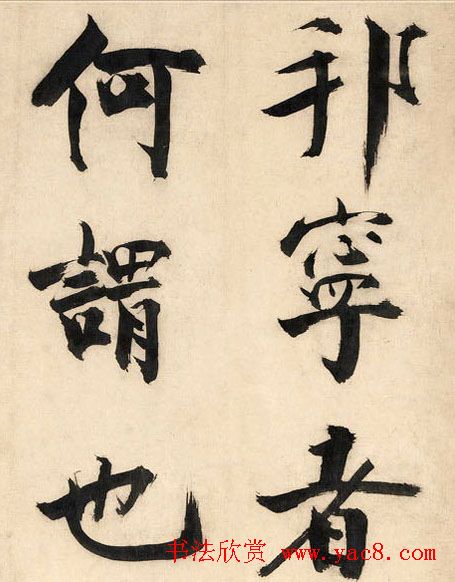 邦寧者
何謂也
书法欣赏 www.yac8.com